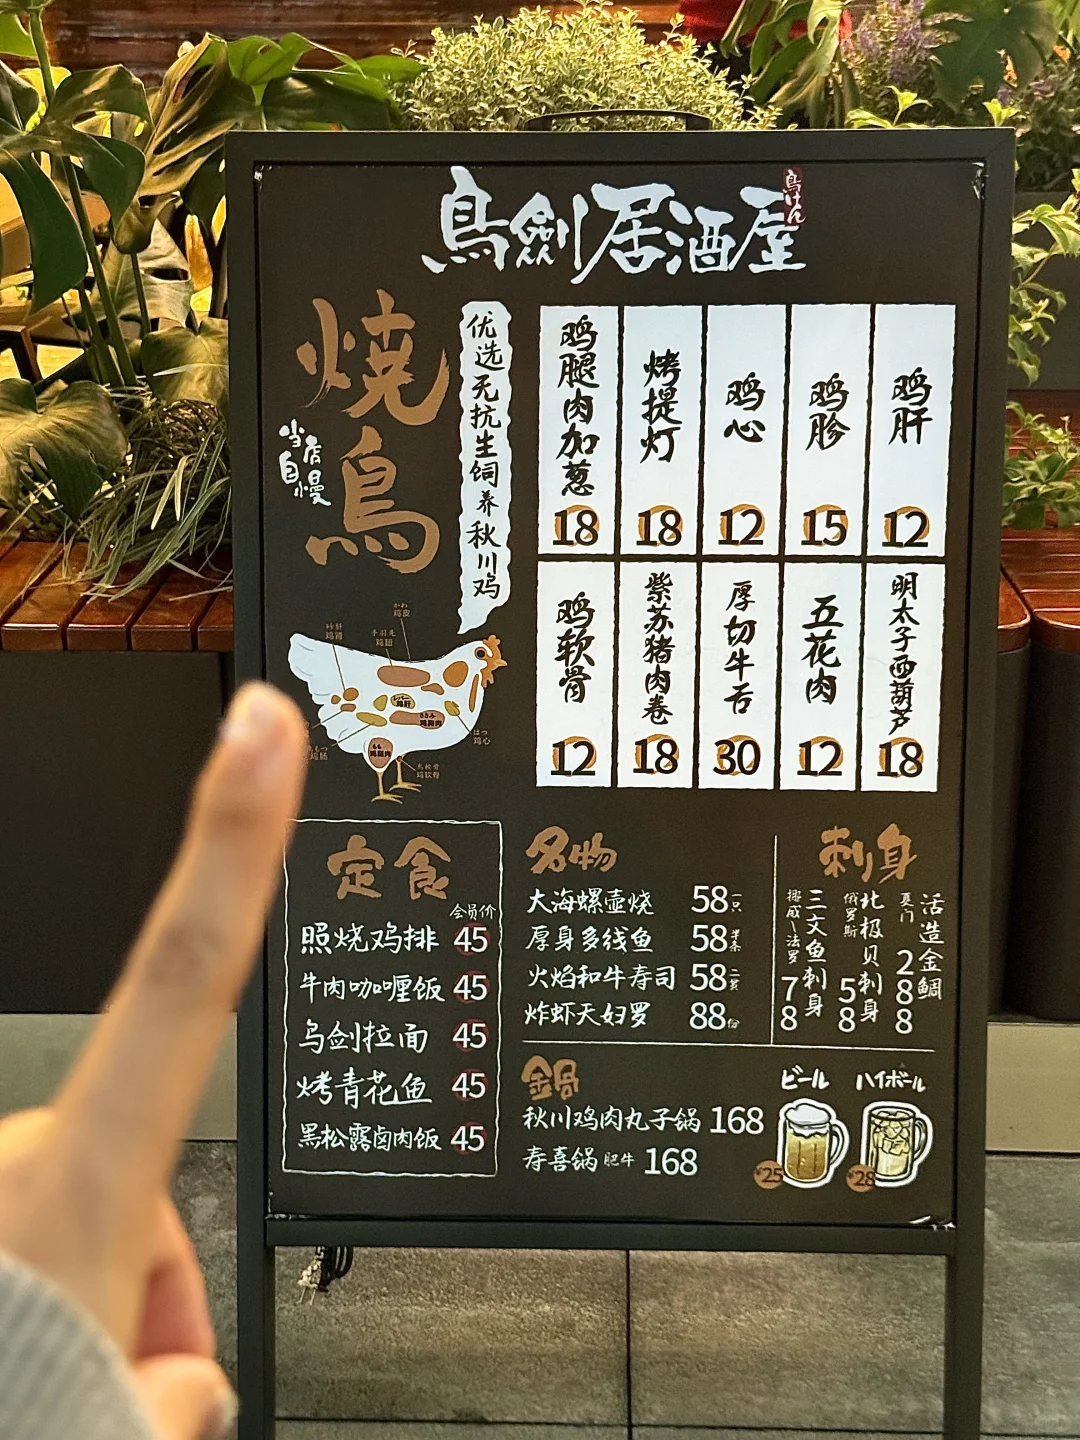 鳥劍居酒屋
鳥けん
焼鳥
当店自慢
优选无抗生饲养秋川鸡
鸡腿肉加葱 18
烤提灯 18
鸡心 12
鸡胗 15
鸡肝 12
鸡软骨 12
紫苏猪肉卷 18
厚切牛舌 30
五花肉 12
明太子西葫芦 18
かわ
鸡皮
砂肝
鸡胃
手羽先
鸡翅
レバー
鸡肝
ささみ
鸡胸肉
はつ
鸡心
もも
鸡腿肉
鸟软骨
鸡软骨
鸡肠
定食
会员价
照烧鸡排 45
牛肉咖喱饭 45
鸟剑拉面 45
烤青花鱼 45
黑松露卤肉饭 45
名物
大海螺壶烧 58 一只
厚身多线鱼 58 半条
火焰和牛寿司 58 二贯
炸虾天妇罗 88 份
刺身
挪威~法罗 三文鱼刺身 78
俄罗斯 北极贝刺身 58
厦门 活造金鲷 288
鍋
秋川鸡肉丸子锅 168
寿喜锅 肥牛 168
ビール
¥25
ハイボール
¥28